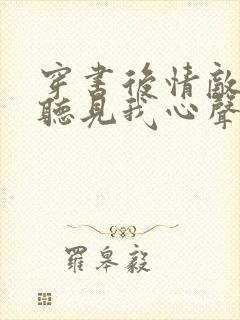 穿書後情敵
聽見我心聲
羅皋毅